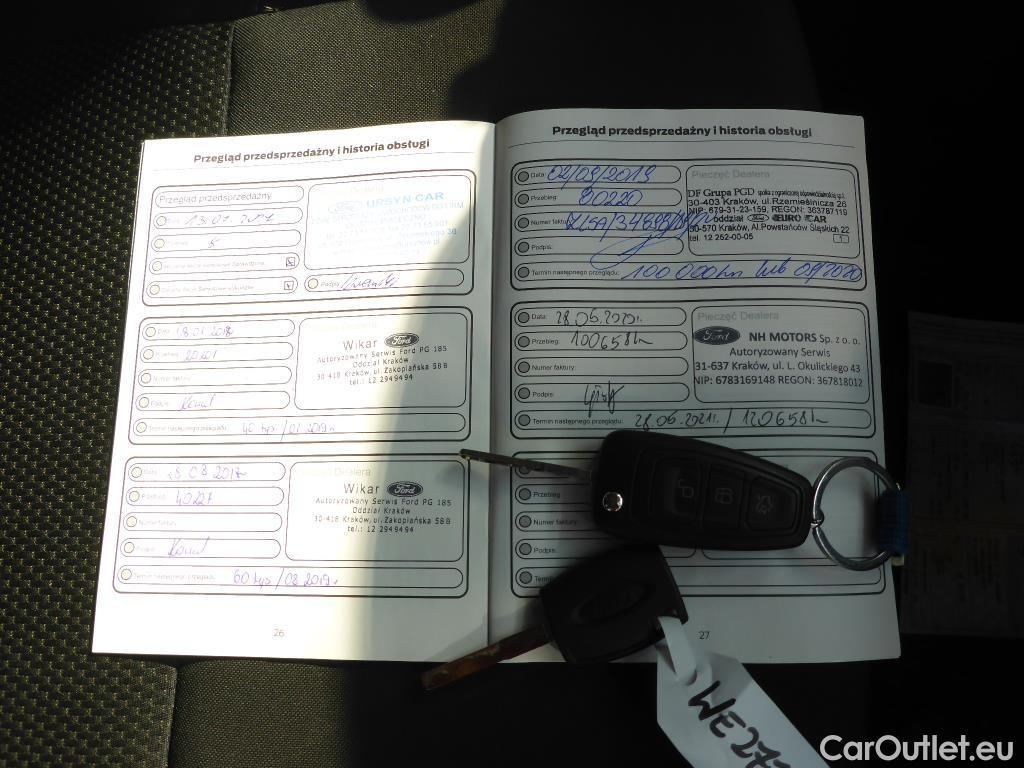 Przegląd przedsprzedażny i historia obsługi
Przegląd przedsprzedażny
Data: 13.07.2017
Przebieg: 5
Podpis:
Dealera
Ford URSYN CAR
Data: 18.01.2018
Przebieg: 20201
Numer faktury:
Podpis:
Termin następnego przeglądu: 40 tys / 01.2019r
Dealera
Wikar Ford
Autoryzowany Serwis Ford PG 185
Oddział Kraków
30-418 Kraków, ul. Zakopiańska 58B
tel.: 12 2949494
Data: 08
Przebieg: 40227
Numer faktury:
Podpis:
Termin następnego przeglądu: 60 tys / 08.2019r
Pieczęć Dealera
Wikar Ford
Autoryzowany Serwis Ford PG 185
Oddział Kraków
30-418 Kraków, ul. Zakopiańska 58B
tel.: 12 2949494
26
Przegląd przedsprzedażny i historia obsługi
Data: 02/09/2019
Przebieg: 80220
Numer faktury:
Podpis:
Termin następnego przeglądu: 100 000km lub 09/2020
Pieczęć Dealera
DF Grupa PGD spółka z ograniczoną odpowiedzialnością sp.j.
30-403 Kraków, ul.Rzemieślnicza 26
NIP: 679-31-23-159, REGON: 363787119
oddział Ford EURO CAR
30-570 Kraków, Al.Powstańców Śląskich 22
tel. 12 262-00-05 1
Data: 28.06.2020r.
Przebieg: 100658km
Numer faktury:
Podpis:
Termin następnego przeglądu: 28.06.2021r. / 120658km
Pieczęć Dealera
Ford NH MOTORS Sp. z o. o.
Autoryzowany Serwis
31-637 Kraków, ul. L. Okulickiego 43
NIP: 6783169148 REGON: 367818012
Przebieg:
Numer faktury:
Podpis:
Termin
27
WE27
CarOutlet.eu